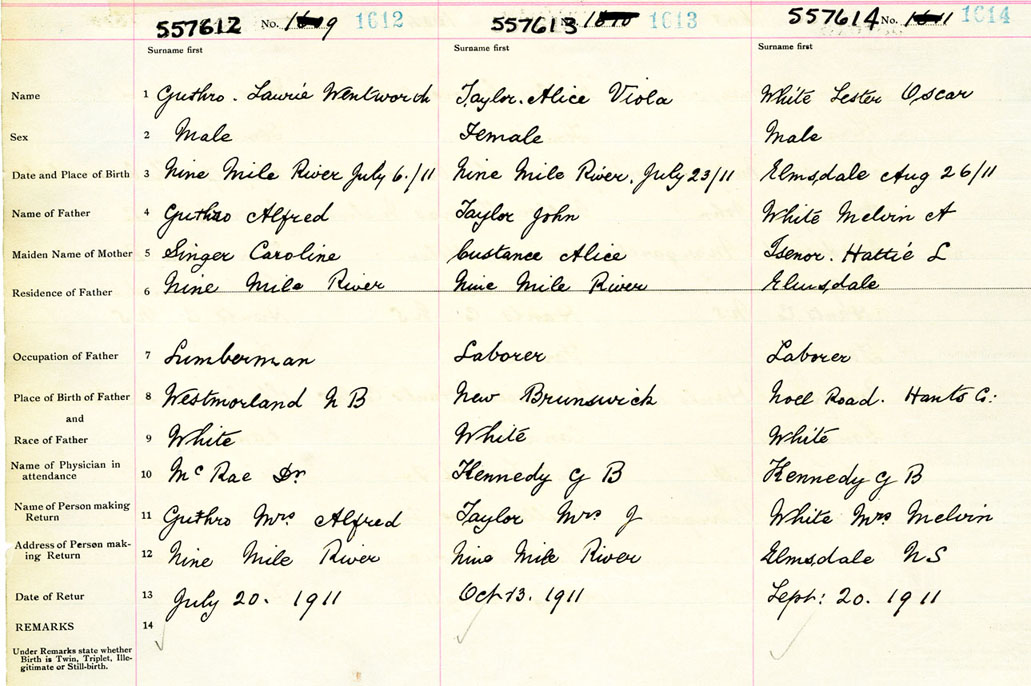 557612 No. 9 1612 557613 No. 1613 557614 No. 1614
Surname first Surname first Surname first
Name 1 Guthro. Laurie Wentworth Taylor. Alice Viola White Lester Oscar
Sex 2 Male Female Male
Date and Place of Birth 3 Nine Mile River July 6./11 Nine Mile River. July 23/11 Elmsdale Aug 26/11
Name of Father 4 Guthro Alfred Taylor John White Melvin A
Maiden Name of Mother 5 Singer Caroline Custance Alice Isenor. Hattie L
Residence of Father 6 Nine Mile River Nine Mile River Elmsdale
Occupation of Father 7 Lumberman Laborer Laborer
Place of Birth of Father 8 Westmorland N B New Brunswick Noel Road. Hants Co:
and
Race of Father 9 White White White
Name of Physician in
attendance 10 McRae Dr Kennedy G B Kennedy G B
Name of Person making
Return 11 Guthro Mrs Alfred Taylor Mrs J White Mrs Melvin
Address of Person mak-
ing Return 12 Nine Mile River Nine Mile River Elmsdale N S
Date of Retur 13 July 20. 1911 Oct 13. 1911 Sept: 20. 1911
REMARKS 14
Under Remarks state whether
Birth is Twin, Triplet, Ille-
gitimate or Still-birth.